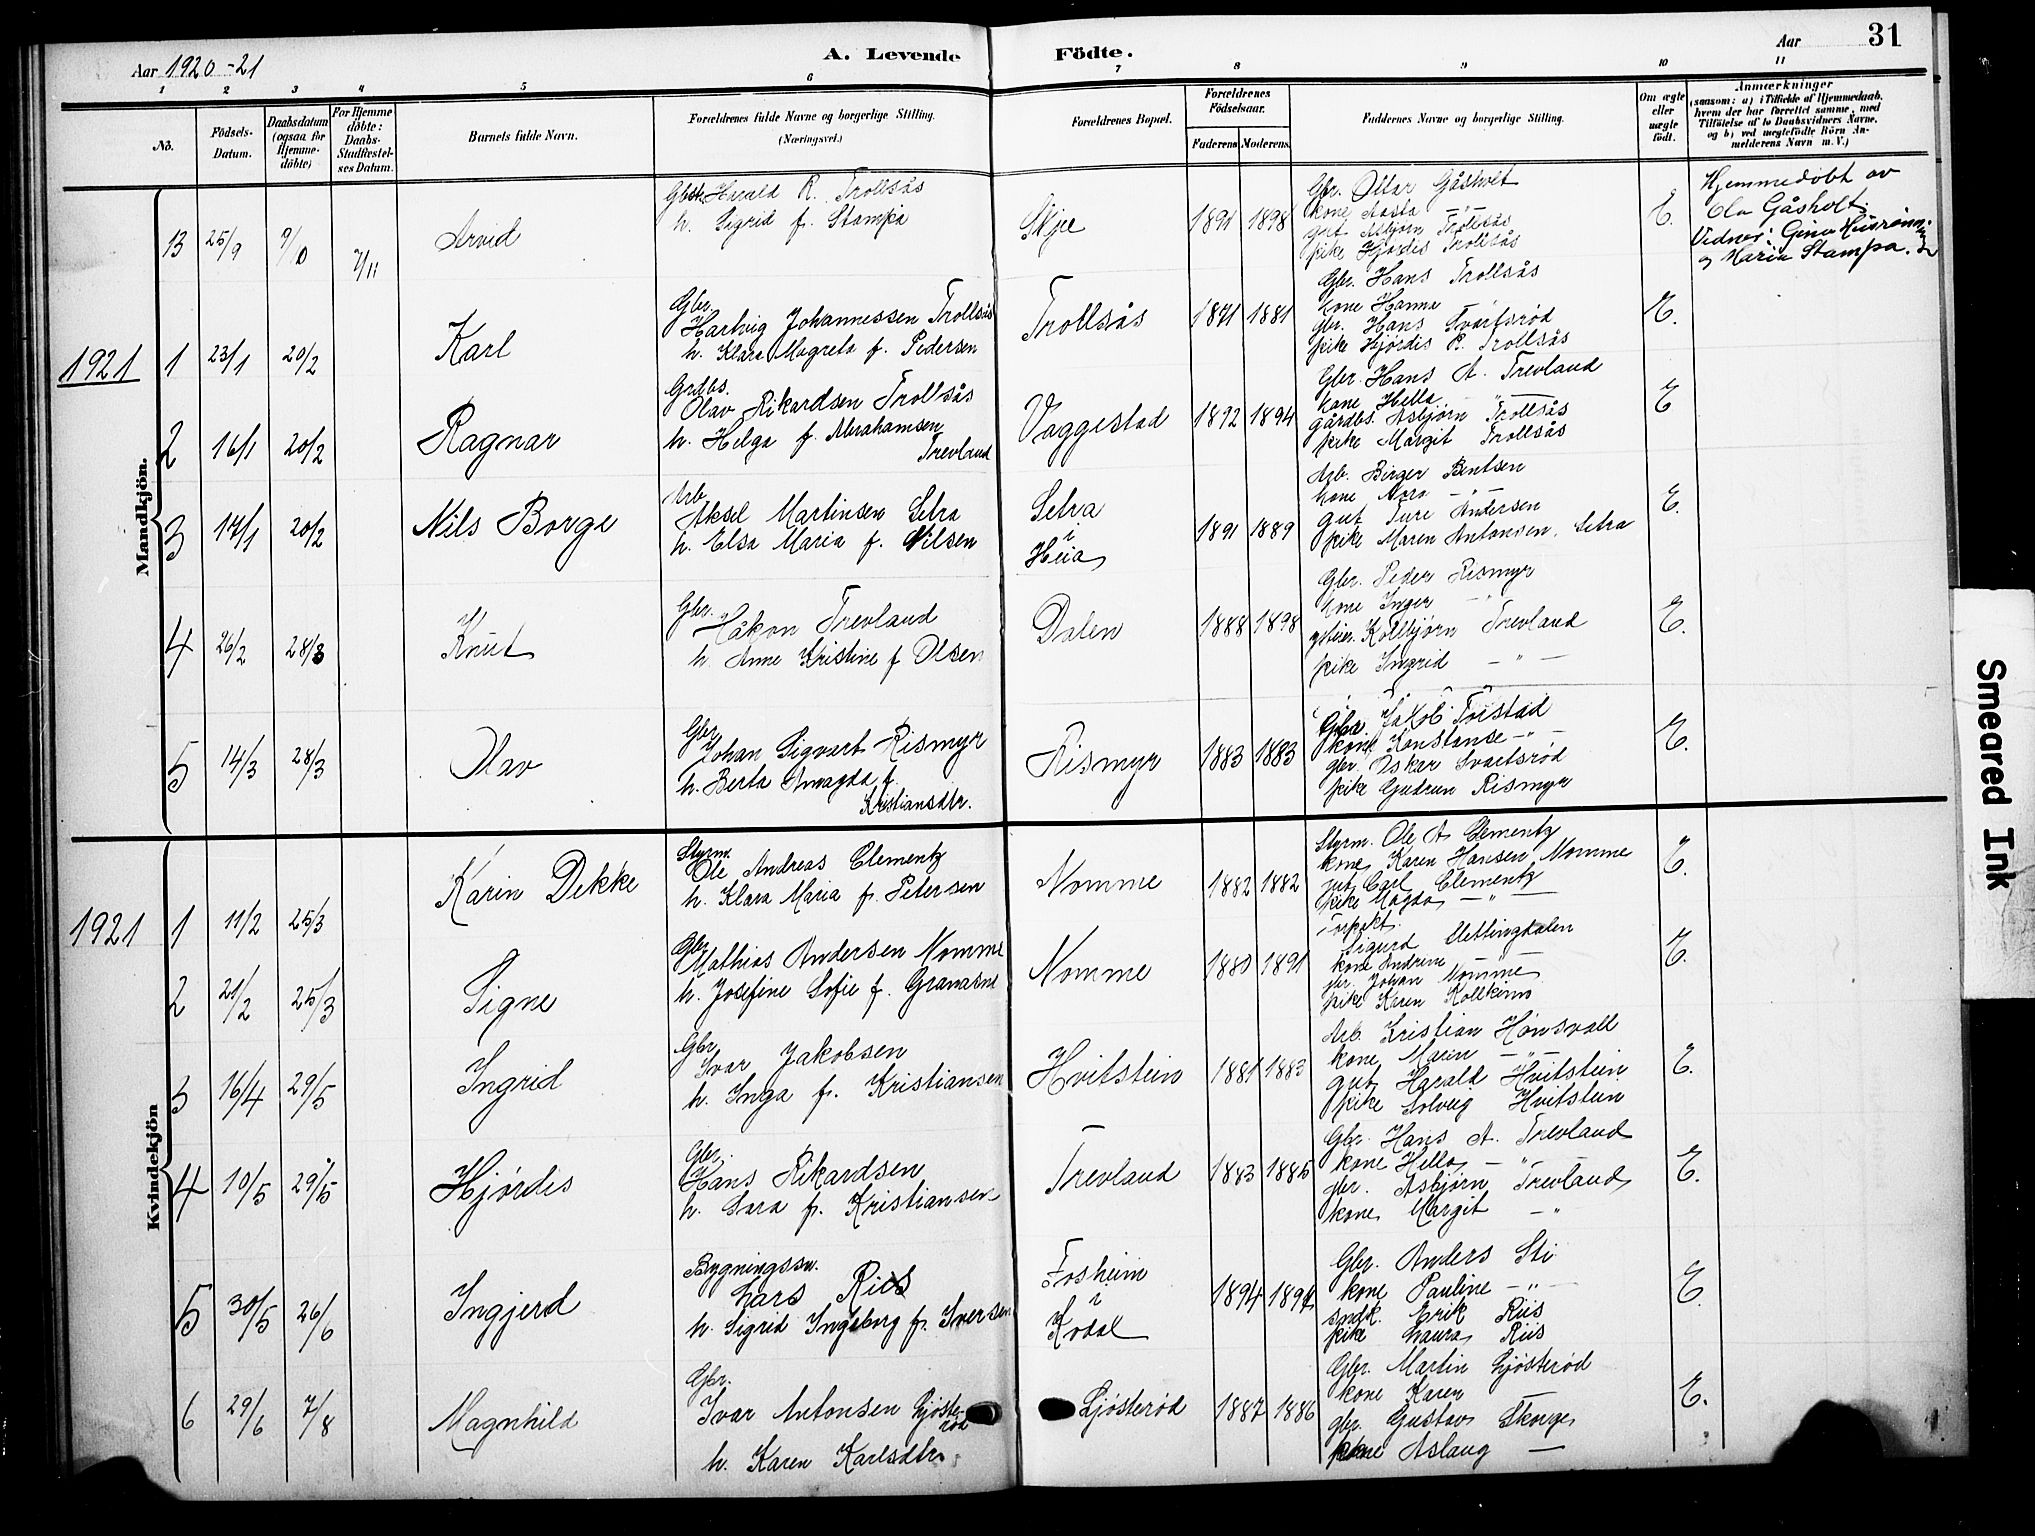 31
Aar 1920-21
A. Levende Födte.
Aar
1 2 3 4 5 6 7 8 9 10 11
No.
Födsels-
Datum.
Daabsdatum
(ogsaa for
Hjemme-
döbte)
For Hjemme
döbte:
Daabs-
Stadfæstel-
ses Datum.
Barnets fulde Navn.
Forældrenes fulde Navne og borgerlige Stilling.
(Næringsvei.)
Forældrenes Bopæl.
Forældrenes
Födselsaar.
Faderens Moderens
Faddernes Navne og borgerlige Stilling.
Om ægte
eller
uægte
födt.
Anmærkninger
(saasom: a) i Tilfælde af Hjemmedaab,
hvem der har forrettet samme, med
Tilföielse af to Daabsvidners Navne,
og b) ved uægtefödte Börn An-
melderens Navn m. V.)
Mandkjön.
13 25/9 9/10 7/11 Arvid
Harald R. Trollsås
h. Sigrid f. Stampa
Skjee
1891 1898
Gbr. Ottar Gåsholt
kone Aasta -"-
gut Asbjørn Trollsås
pike Hjørdis Trollsås
E.
Hjemmedøbt av
Ola Gåsholt.
Vidner: Gina
og Maria Stampa.
1921 1 23/1 20/2 Karl
Gbr.
Hartvig Johannessen Trollsås
h. Klara Magreta f. Pedersen
Trollsås
1891 1881
Gbr. Hans Trollsås
kone Hanna
gbr. Hans Svartsrød
pike Hjørdis R. Trollsås
E.
2 16/1 20/2 Ragnar
Grdbs.
Olav Rikardsen Trollsås
h. Helga f. Abrahamsen
Trevland
Vaggestad
1892 1894
Gbr. Hans A. Trevland
kone Hella -"-
gårdbs. Asbjørn Trollsås
pike Margit Trollsås
E
3 17/1 20/2 Nils Borge
Arb.
Aksel Martinsen Setra
h. Elsa Maria f. Nilsen
Setra
i
Heia
1891 1889
Arb. Birger Bentsen
kone Nora -"-
gut Ture Andersen
pike Maren Antonsen, Setra
E.
4 26/2 28/3 Knut
Gbr.
Håkon Trevland
h. Anne Kristine f Olsen
Dalen
1888 1898
Gbr. Peder Rismyr
kone Inger -"-
Kolbjørn Trevland
pike Ingrid -"-
E.
5 14/3 28/3 Olav
Gbr.
Johan Sigvart Rismyr
h. Berta Amagda f.
Kristiansdtr.
Rismyr
1883 1883
Gbr. Jakob Tolstad
kone Konstanse -"-
gbr. Oskar Svartsrød
pike Gudrun Rismyr
E.
Kvindekjön
1921 1 11/2 25/3 Karin Dekke
Styrm.
Ole Andreas Clementz
h. Klara Maria f. Petersen
Nomme
1882 1882
Styrm. Ole A Clementz
kone Karen Hansen Nomme
gut Carl Clementz
pike Magda -"-
E.
2 21/2 25/3 Signe
Gbr.
Mathias Andersen Nomme
h. Josefine Sofie f.
Nomme
1880 1891
Forpakt.
Sigurd
kone Andrine -"-
gbr. Johan Nomme
pike Karen
E.
3 16/4 29/5 Ingrid
Gbr.
Ivar Jakobsen
h. Inga f. Kristiansen
Hvitstein
1881 1883
Arb. Kristian Hønsvall
kone Marin -"-
gut Harald Hvitstein
pike Solveig Hvitstein
E.
4 10/5 29/5 Hjørdis
Gbr.
Hans Rikardsen
h. Sara f. Kristiansen
Trevland
1883 1885
Gbr. Hans A. Trevland
kone Hella -"-
gbr. Asbjørn Trevland
kone Margit -"-
E.
5 30/5 26/6 Ingjerd
Bygningssn.
Lars Riis
h. Sigrid Ingeborg f. Iversen
Fosheim
i
Kodal
1894 1894
Gbr. Anders Sti
kone Pauline -"-
sndk. Erik Riis
pike Laura Riis
E
6 29/6 7/8 Magnhild
Gbr.
Ivar Antonsen Ljøste-
rød
h. Karen Karlsdtr.
Ljøsterød
1887 1886
Gbr. Martin Ljøsterød
kone Karen -
gbr. Gustav Skorge
kone Aslaug -
E.
Smeared Ink